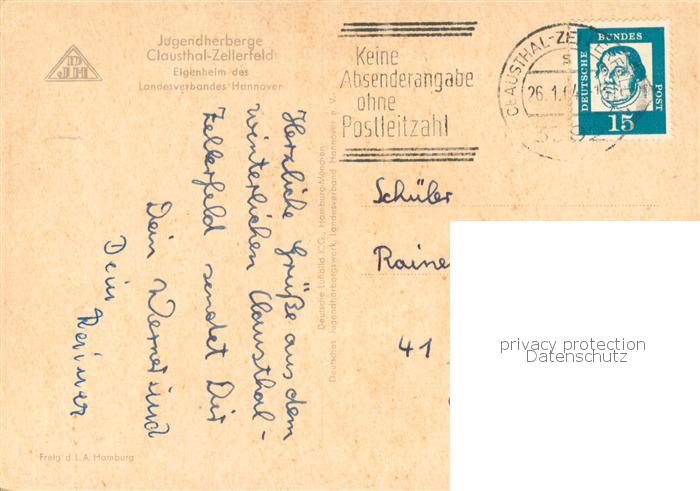 Jugendherberge
Clausthal-Zellerfeld
Eigenheim des
Landesverbandes Hannover
DJH
Keine
Absenderangabe
ohne
Postleitzahl
CLAUSTHAL-ZELLERFELD
26.1.64
3392
DEUTSCHE BUNDES POST
15
Herzliche Grüße aus dem
winterlichen Clausthal-
Zellerfeld sendet Dir
Dein Werner und
Dein Reiner
Deutsche Luftbild K.G., Hamburg-München
Deutsches Jugendherbergswerk, Landesverband Hannover e. V.
Schüler
Raine
41
privacy protection
Datenschutz
Freig d. L.A. Hamburg